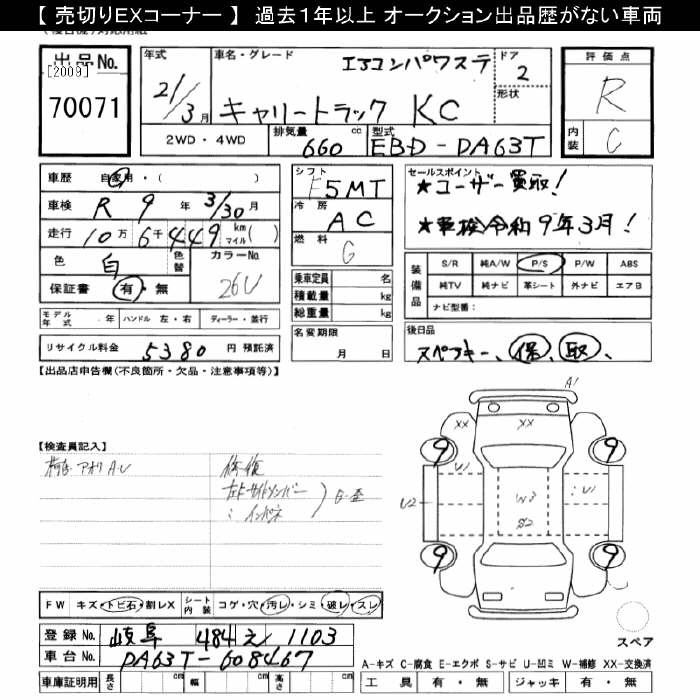 【 売切りEXコーナー 】 過去１年以上 オークション出品歴がない車両
出品 No.
[2009]
70071
年式
21/3月
車名・グレード
エアコンパワステ
キャリートラック KC
ドア
2
形状
評価点
R
内装
C
2WD・4WD
排気量
660 cc
型式
EBD-DA63T
車歴 自家用・( )
車検 R 9 年 3/30 月
走行 10万 6千 449 km マイル( )
色 白 色替
カラーNo.
26U
保証書 有・無
モデル年式 . 年 ハンドル 左・右 ディーラー・並行
リサイクル料金 5380 円 預託済
シフト
F5MT
冷房
AC
燃料
G
乗車定員 名
積載量 kg
総重量 kg
名変期限
月 日
セールスポイント
★ユーザー買取!
★車検令和9年3月!
装備品
S/R 純A/W P/S P/W ABS
純TV 純ナビ 革シート 外ナビ エアB
ナビ型番:
後日品
スペアキー、保、取、
【出品店申告欄(不良箇所・欠品・注意事項等)】
【検査員記入】
修復
インパネ
A1
XX XX XX
9 9
U1 U1
U2
W3
S2
9 9
FW キズ・トビ石・割レX シート内装 コゲ・穴・汚レ・シミ・破レ・スレ
登録 No. 岐阜 484 え 1103
車台 No. DA63T-608467
車庫証明用 長さ cm 幅 cm 高さ cm
スペア
A-キズ C-腐食 E-エクボ S-サビ U-凹ミ W-補修 XX-交換済
工具 有・無 ジャッキ 有・無